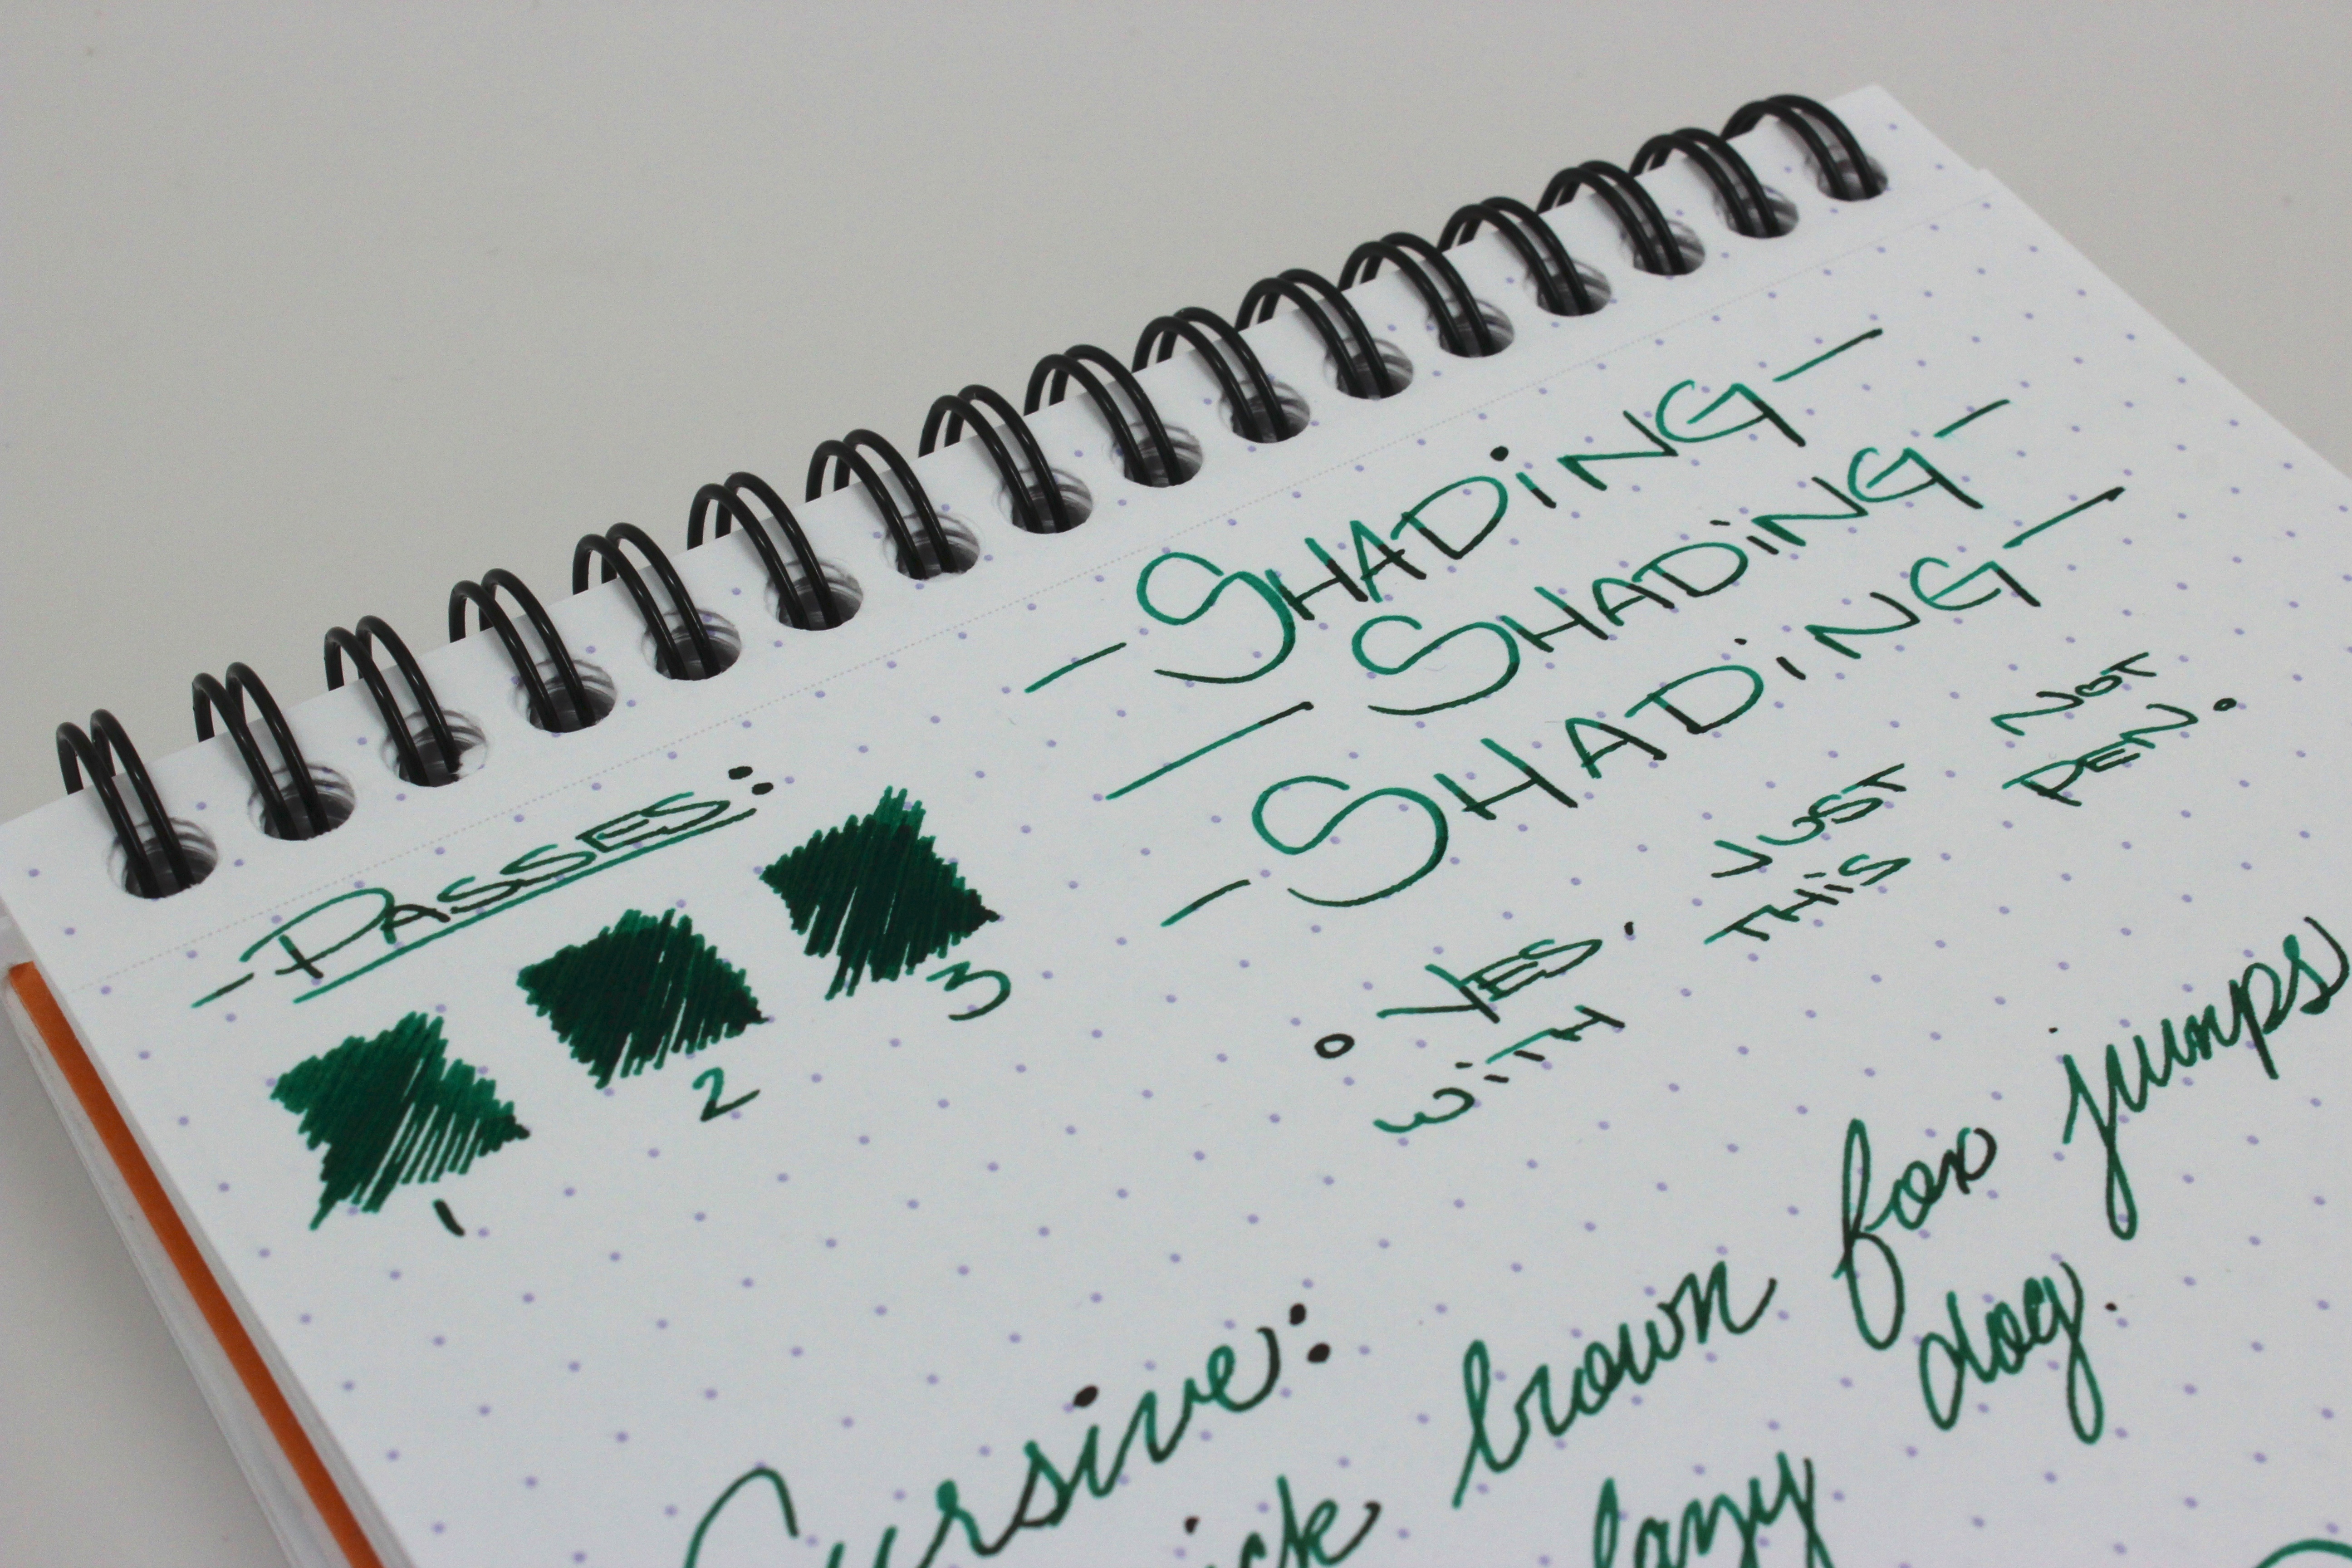 -PASSES:
1 2 3
-SHADiNG-
-SHADiNG-
-SHADiNG-
° YES. JUST NOT
WiTH THiS PEN.
Cursive:
brown fox jumps
lazy dog.